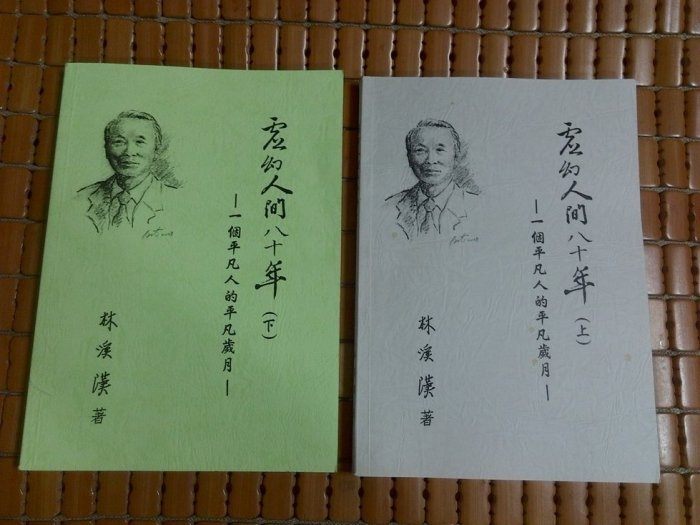 虛幻人間八十年(下)
—一個平凡人的平凡歲月—
林溪漢 著
虛幻人間八十年(上)
—一個平凡人的平凡歲月—
林溪漢 著